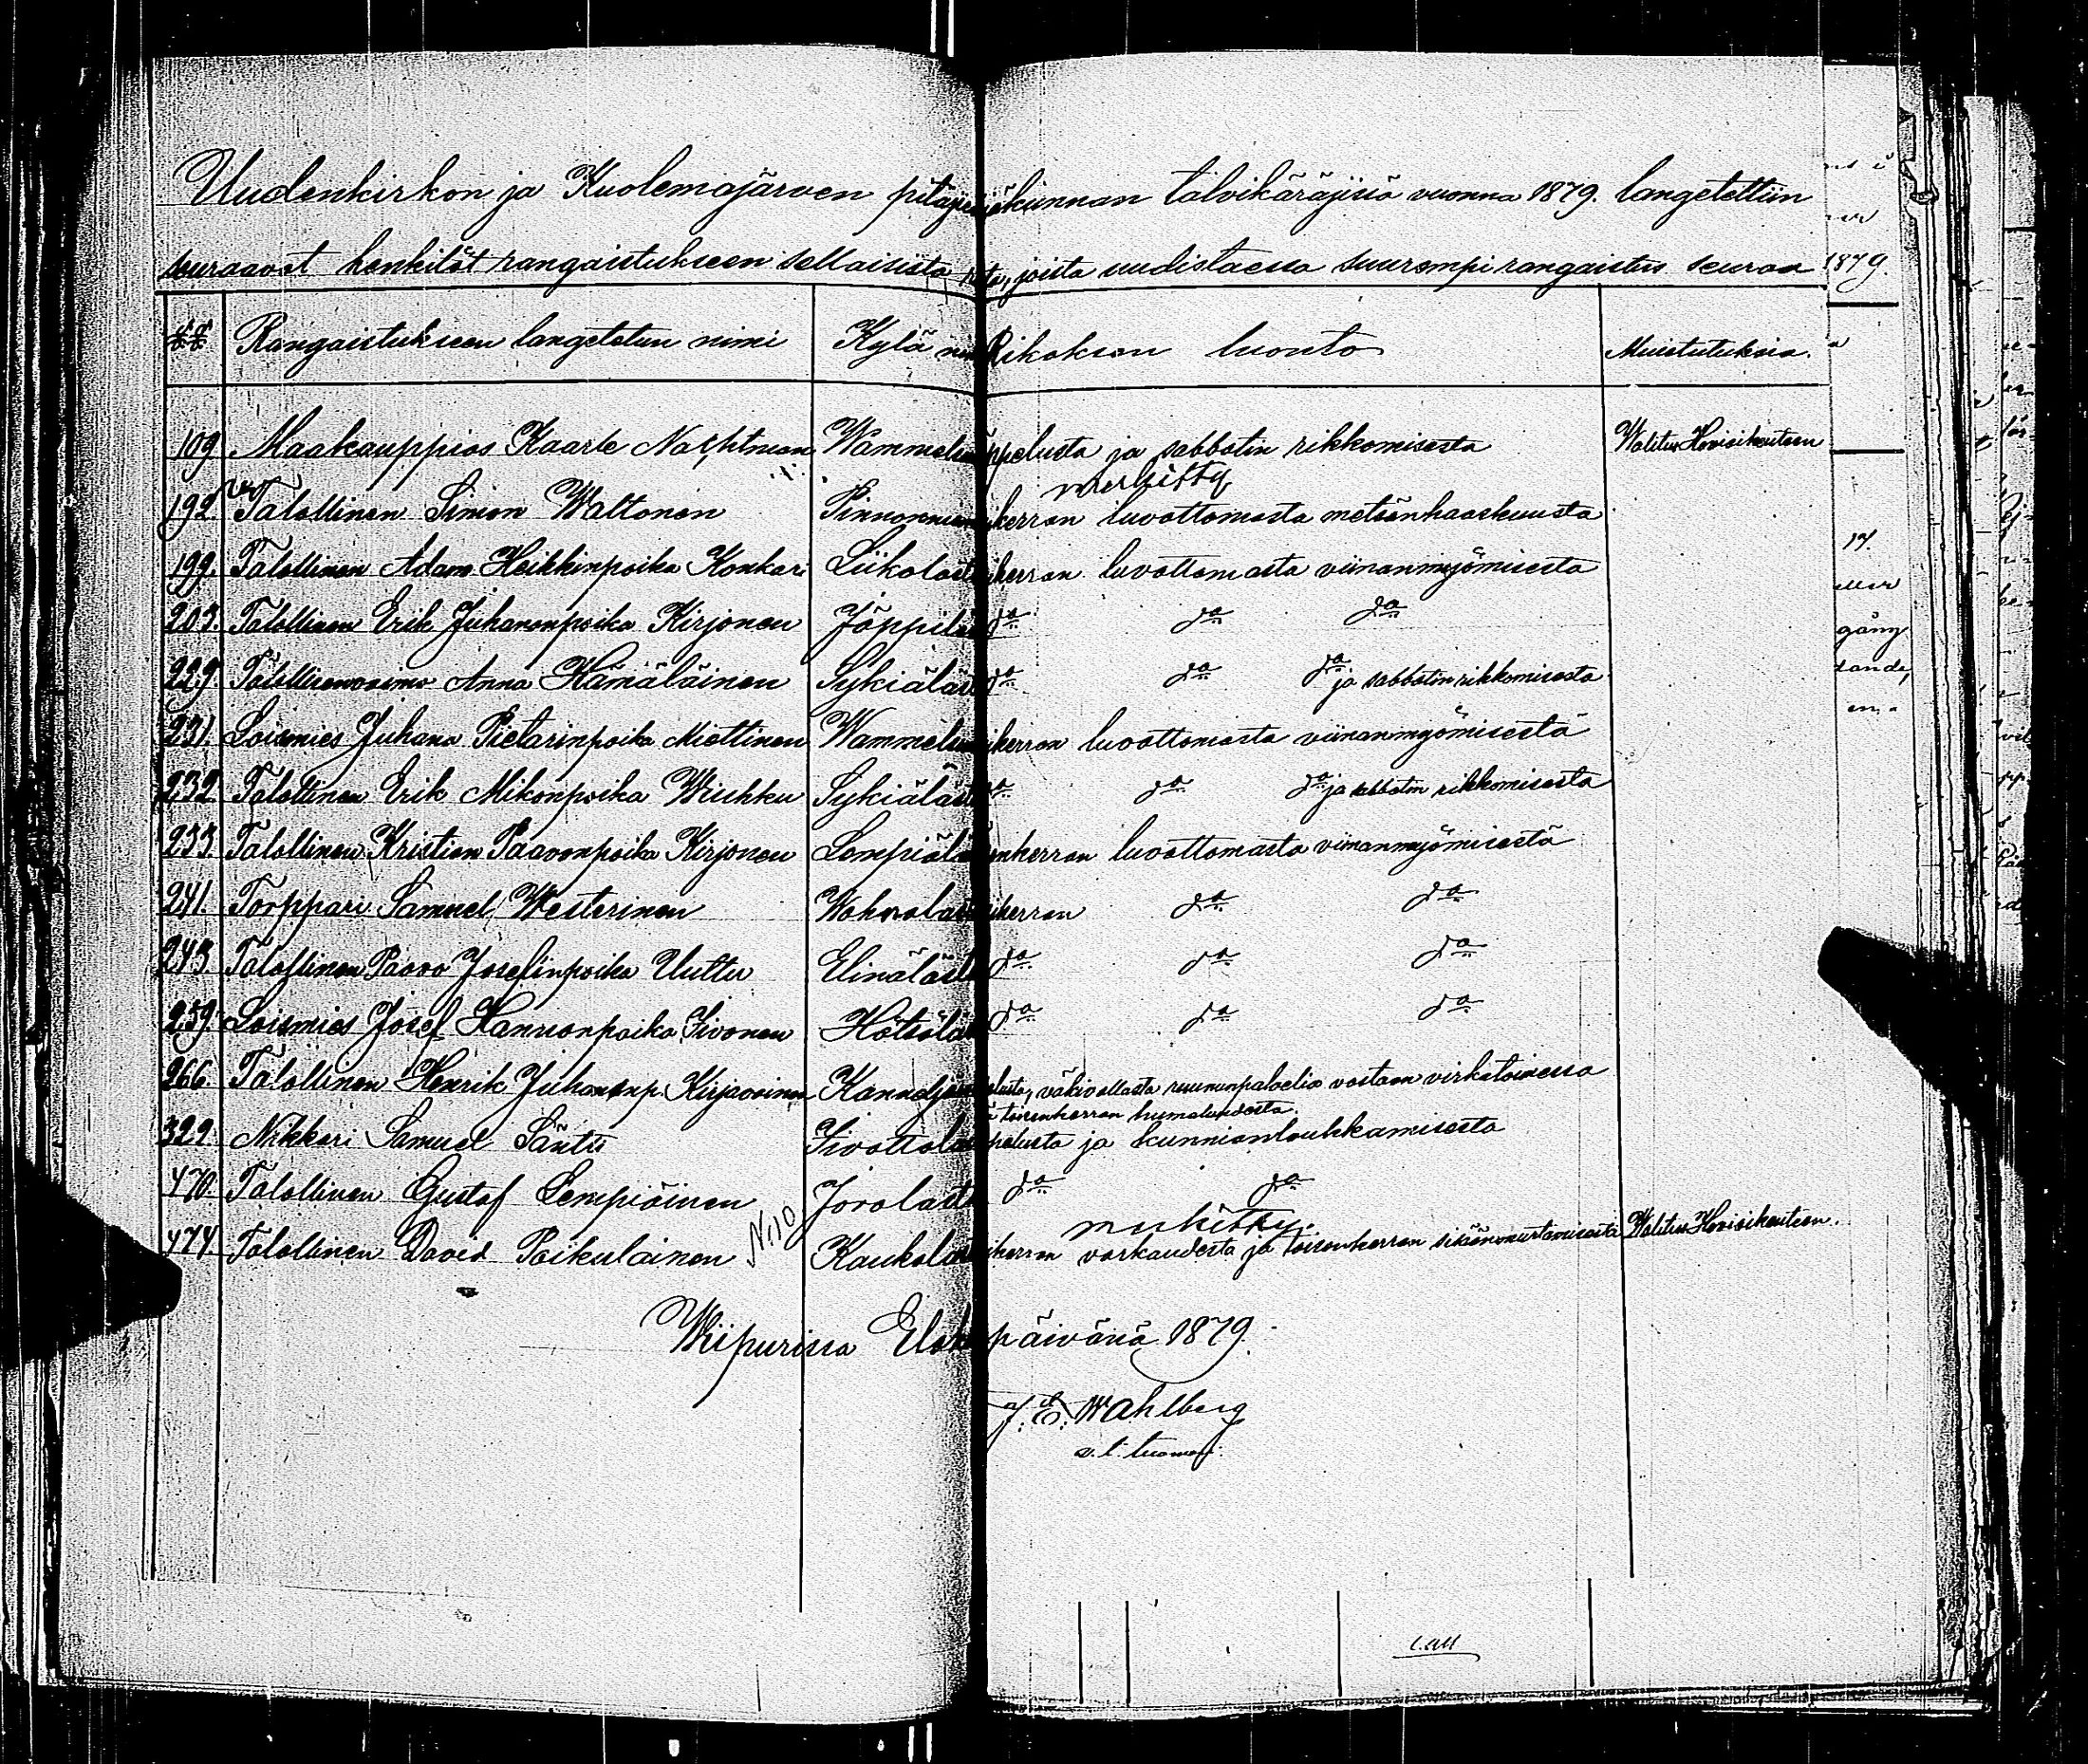 Uudenkirkon ja Kuolemajärven pitäjä kunnan talvikäräjissä vuonna 1879. langetettiin
seuraavat henkilöt rangaistukseen sellaisista joista uudistaessa suurempi rangaistus seuraa 1879.
Rangaistukseen langetetun nimi Kylä Rikoksen luonto Muistutuksia.
109 Maakauppias Kaarle Wammels ppelusta ja sabbatin rikkomisesta Walitus Hovioikeuteen
merkitty
192. Talollinen Simon Waltonen Pinnonm kerran luvattomasta metsänhaaskuusta
199. Talollinen Adam Heikkinpoika Konkari Liikolast kerran luvattomasta viinanmyömisestä
203. Talollinen Erik Juhananpoika Kirjonen Jäppilä do do do
229. Talollisenvaimo Anna Hämäläinen Sykiäläst do do do ja sabbatin rikkomisesta
231. Loismies Juhana Pietarinpoika Miettinen Wammels kerran luvattomasta viinanmyömisestä
232 Talollinen Erik Mikonpoika Wiuhku Sykiäläst do do do ja sabbatin rikkomisesta
233. Talollinen Kristian Paavonpoika Kirjonen Lempiälä enkerran luvattomasta viinanmyömisestä
241. Torppari Samuel Westerinen Wohnalast kerran do do
243 Talollinen Paavo Josefinpoika Uuttu Elinäläst do do do
259. Loismies Josef Hannonpoika Sivonen Hötsölä do do do
266. Talollinen Henrik Juhananp. Kirjavainen Kanneljär elusta, väkivallasta ruununpalvelia vastaan virkatoimessa
toisenkerran humalasta.
322 Nikkari Samuel Säntti Sivattola pelusta ja kunnianloukkamisesta
470. Talollinen Gustaf Lempiäinen Jovolast do do
merkitty.
474 Talollinen David Paikulainen No 10 Kaukola kerran varkaudesta ja toisenkerran sisäänmurtamisesta Walitus Hovioikeuteen.
Wiipurissa Elok päivänä 1879.
J. E. Wahlberg
v. t. tuomari